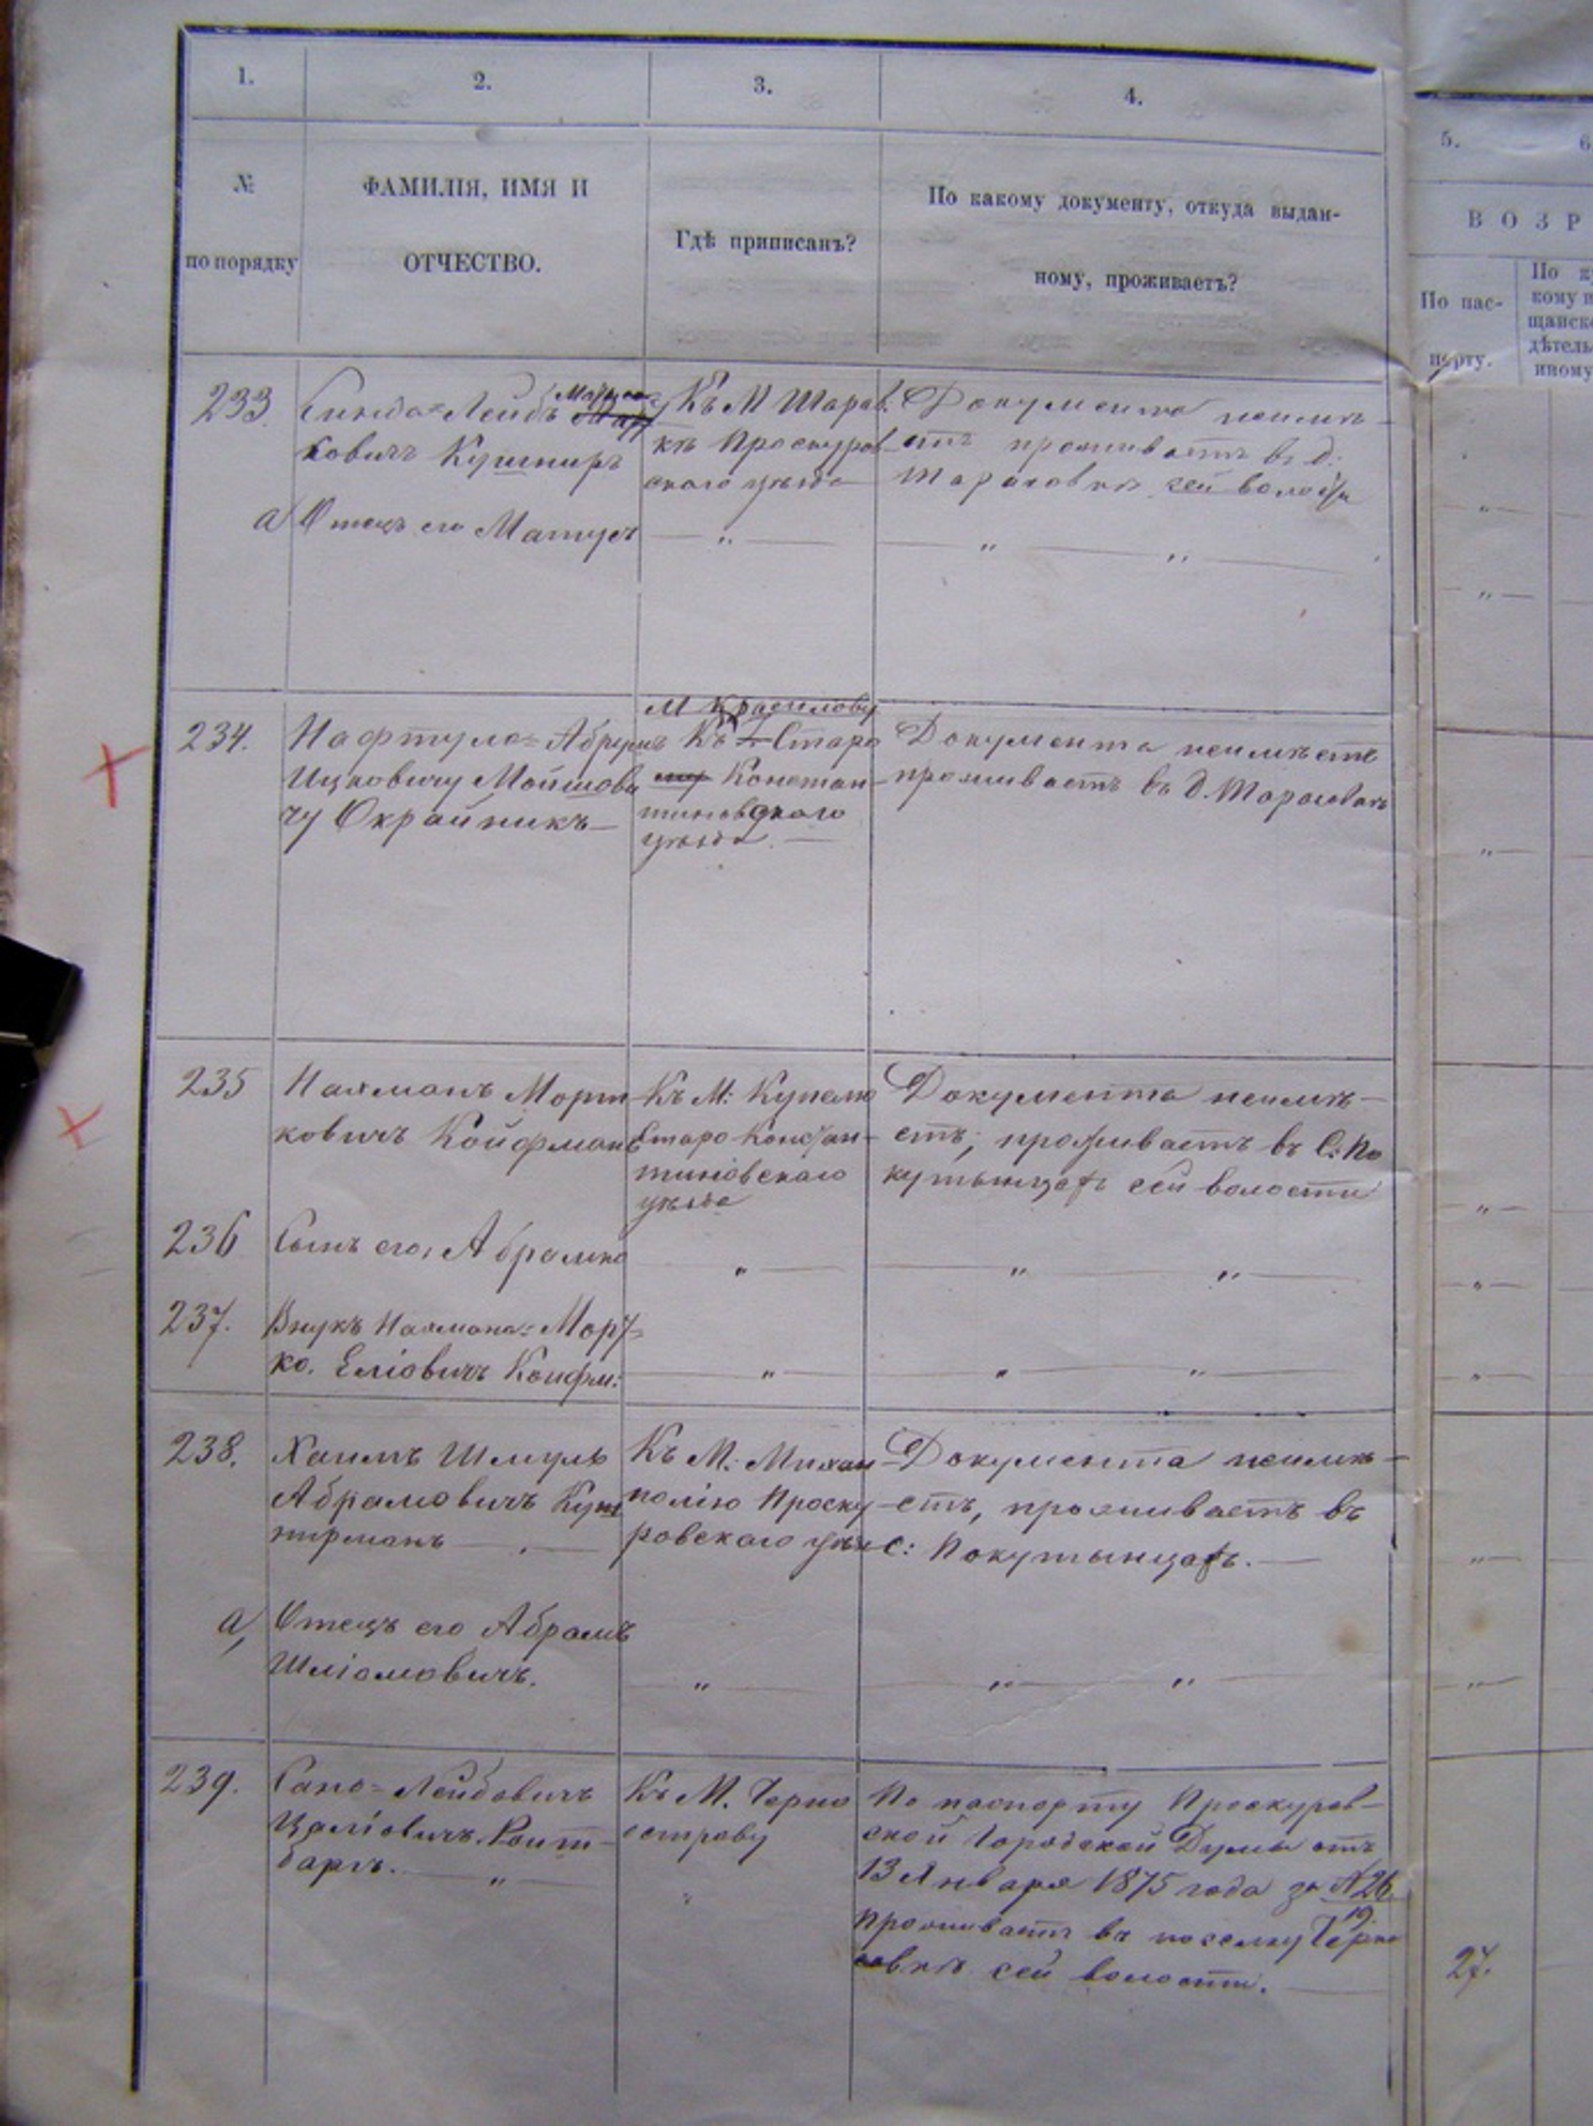 1. 2. 3. 4. 5. 6
№ по порядку
ФАМИЛІЯ, ИМЯ И
ОТЧЕСТВО.
Гдѣ приписанъ?
По какому документу, откуда выдан-
ному, проживаетъ?
ВОЗР
По пас-
порту.
По
кому
щанск
дѣтель
иному
233.
Лейбъ
ковичъ Кушниръ
Къ М Шарав:
кѣ Проскуров-
скаго уѣзда
Документа неимѣ-
етъ проживаетъ въ д:
Тарасовкѣ сей волости
а Отецъ его Матусъ — " — — " — " —
234.
Нафтуло=Абрумъ
Ицковичу Мойшови
чу Окрайникъ —
М Красилову
Къ Старо
Констан-
тиновскаго
уѣзда. —
Документа неимѣетъ
проживаетъ въ д. Тарасовкѣ
235
Нахманъ Морт
ковичъ Койфманъ
Къ М: Купелю
Старо Констан-
тиновскаго
уѣзда
Документа неимѣ-
етъ, проживаетъ въ С: По
кутынцахъ сей волости
236 Сынъ его, Абрамко — " — — " — " —
237. Внукъ Нахмана=Морт=
ко. Еліовичъ Койфм: — " — — " — " —
238.
Хаимъ Шмуль
Абрамовичъ Куш
нирманъ —
Къ М: Михал
полію Проску
ровскаго уѣз
Документа неимѣ-
етъ, проживаетъ въ
С: Покутынцахъ. —
а, Отецъ его Абрамъ
Шліомовичъ. — " — — " — " —
239.
Лейбовичъ
Роит-
баргъ. — " —
Къ М. Черно
острову
"
По паспорту Проскуров-
ской Городской Думы отъ
13 Января 1875 года за №26
19.
проживаетъ въ поселку
сей волости. —
27.